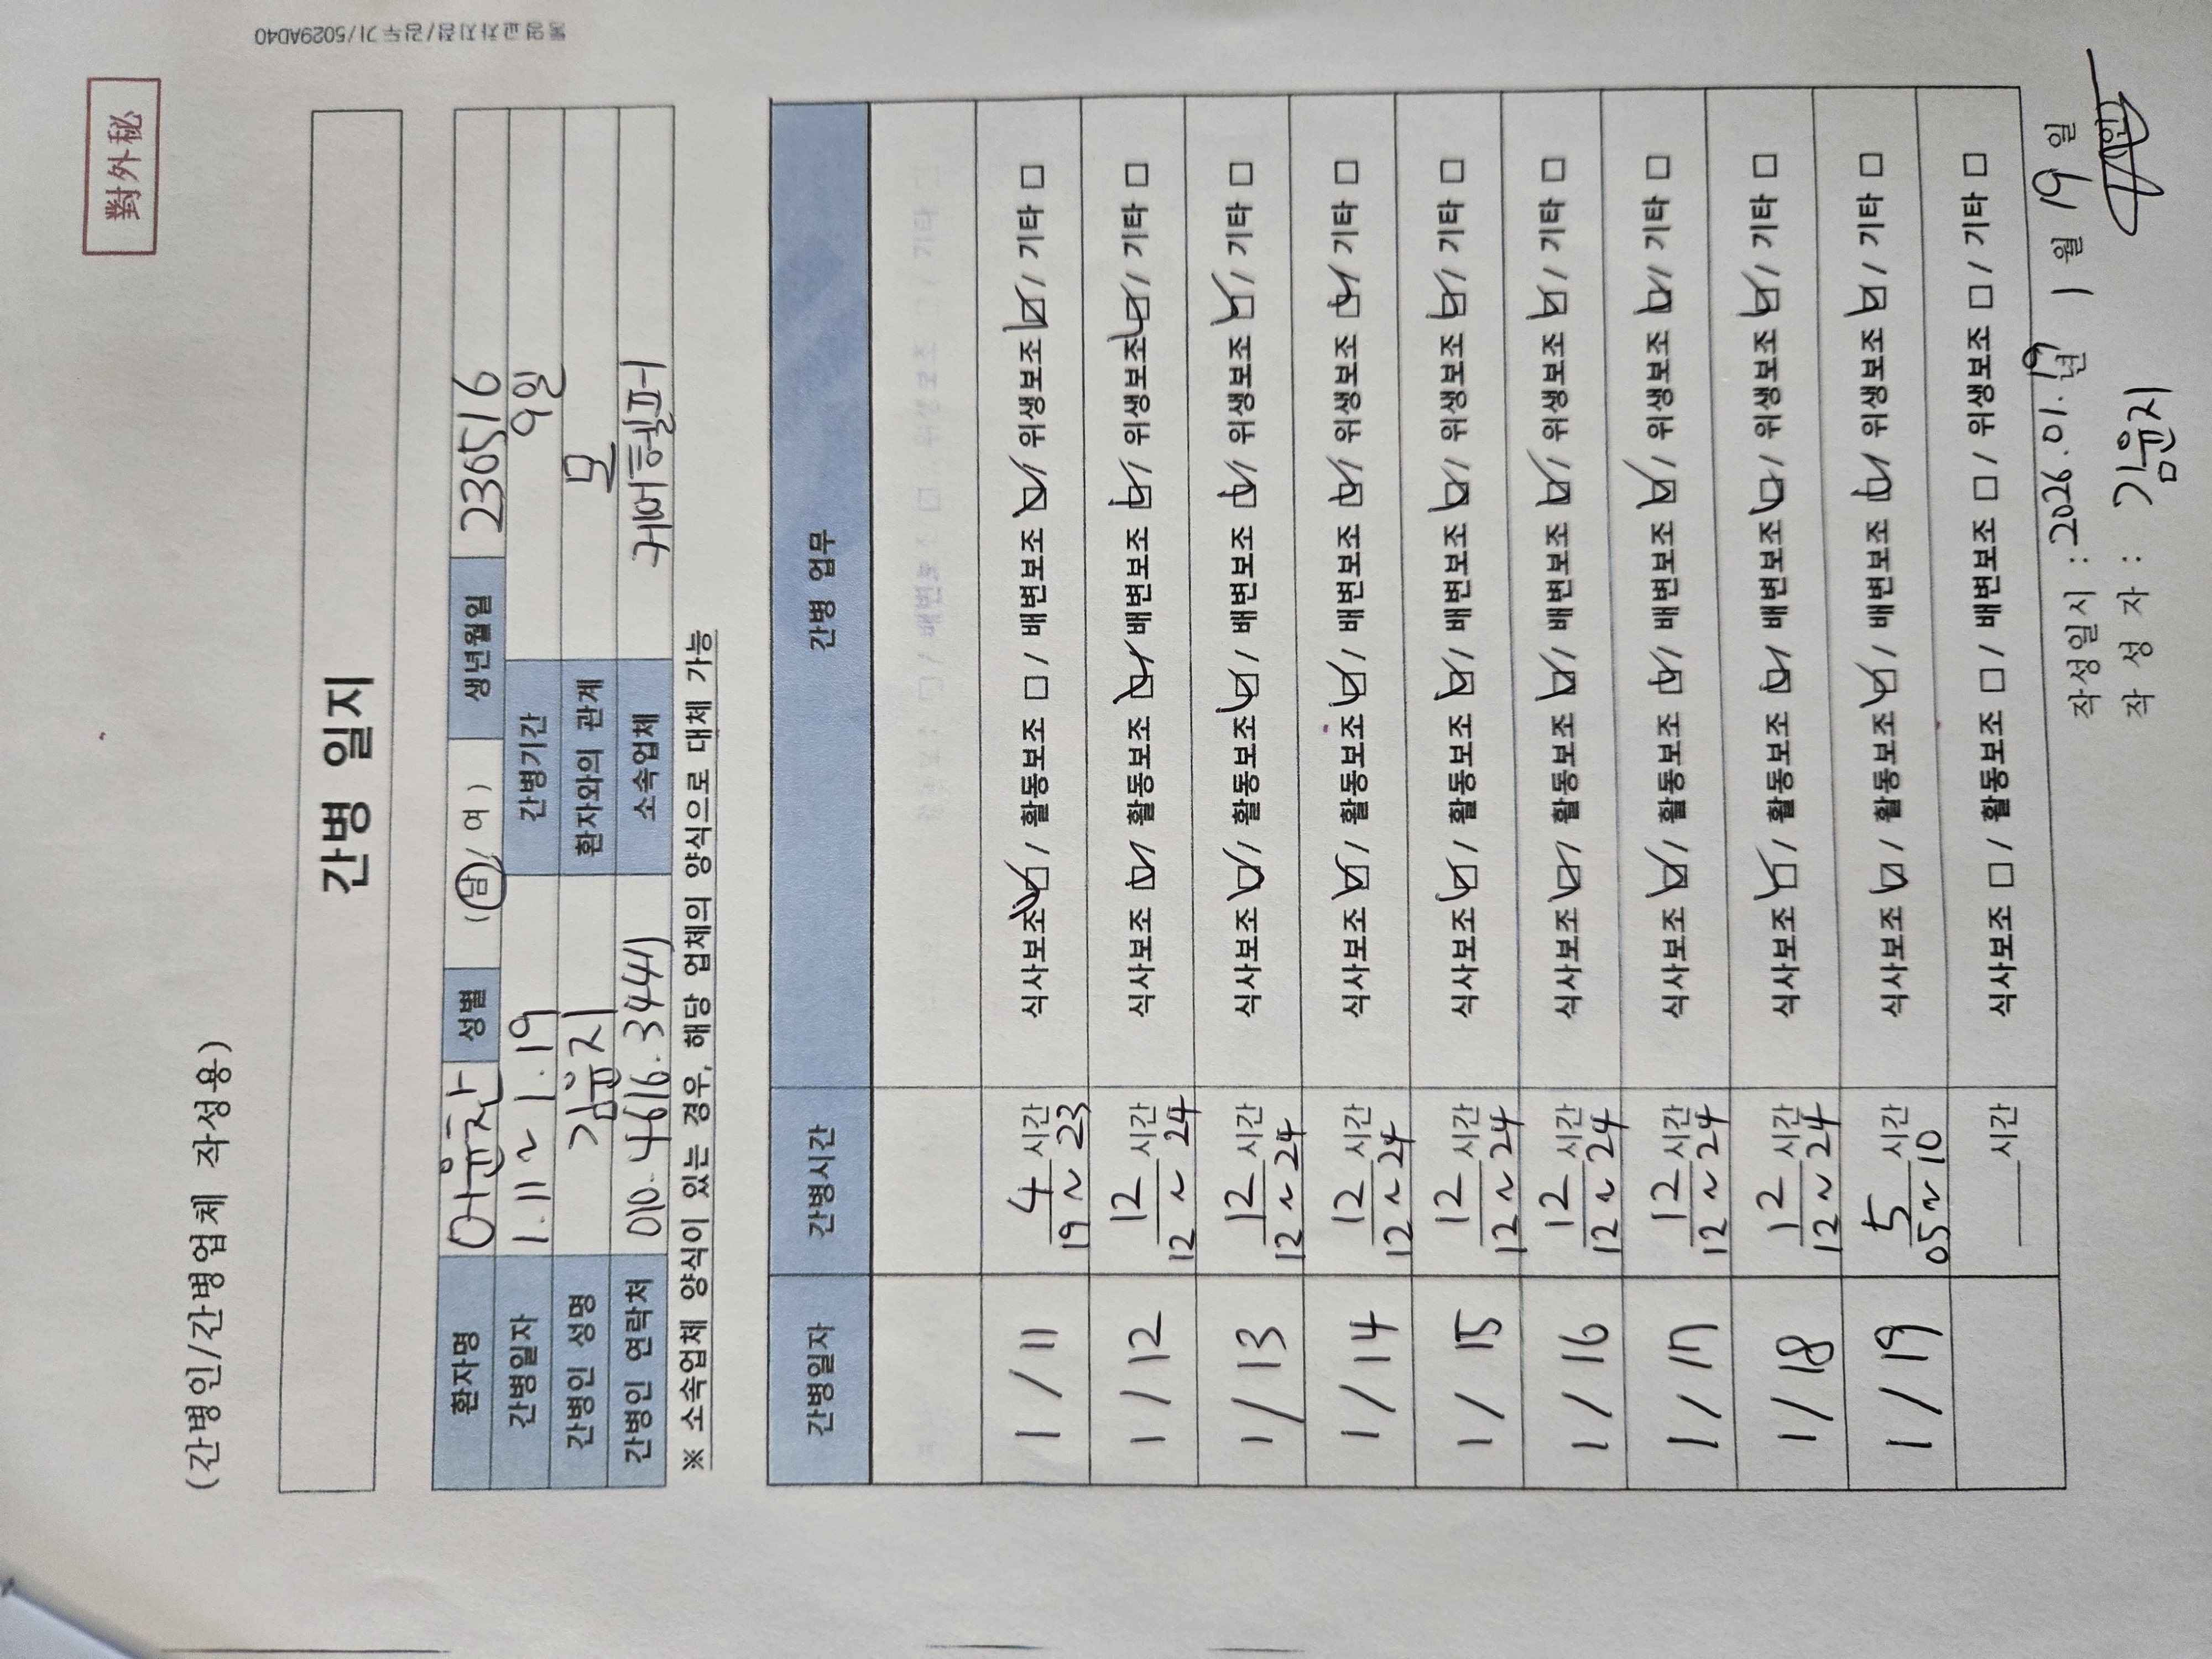 통영교차지점/김두기/5029AD40
對外秘
(간병인/간병업체 작성용)
간병 일지
환자명 어윤찬 성별 (남/여) 생년월일 230516
간병일자 1.11 ~ 1.19 간병기간 9일
간병인 성명 김윤지 환자와의 관계 모
간병인 연락처 010.4616.3441 소속업체 케어헬퍼
※ 소속업체 양식이 있는 경우, 해당 업체의 양식으로 대체 가능
간병일자 간병시간 간병 업무
1/11 4 시간 19~23 식사보조 ☑/ 활동보조 □/ 배변보조 ☑/ 위생보조 ☑/ 기타 □
1/12 12 시간 12~24 식사보조 ☑/ 활동보조 ☑/ 배변보조 ☑/ 위생보조 ☑/ 기타 □
1/13 12 시간 12~24 식사보조 ☑/ 활동보조 ☑/ 배변보조 ☑/ 위생보조 ☑/ 기타 □
1/14 12 시간 12~24 식사보조 ☑/ 활동보조 ☑/ 배변보조 ☑/ 위생보조 ☑/ 기타 □
1/15 12 시간 12~24 식사보조 ☑/ 활동보조 ☑/ 배변보조 ☑/ 위생보조 ☑/ 기타 □
1/16 12 시간 12~24 식사보조 ☑/ 활동보조 ☑/ 배변보조 ☑/ 위생보조 ☑/ 기타 □
1/17 12 시간 12~24 식사보조 ☑/ 활동보조 ☑/ 배변보조 ☑/ 위생보조 ☑/ 기타 □
1/18 12 시간 12~24 식사보조 ☑/ 활동보조 ☑/ 배변보조 ☑/ 위생보조 ☑/ 기타 □
1/19 5 시간 05~10 식사보조 ☑/ 활동보조 ☑/ 배변보조 ☑/ 위생보조 ☑/ 기타 □
____시간 식사보조 □/ 활동보조 □/ 배변보조 □/ 위생보조 □/ 기타 □
작성일시 : 2026.01.19 년 1 월 19 일
작 성 자 : 김윤지 (인)